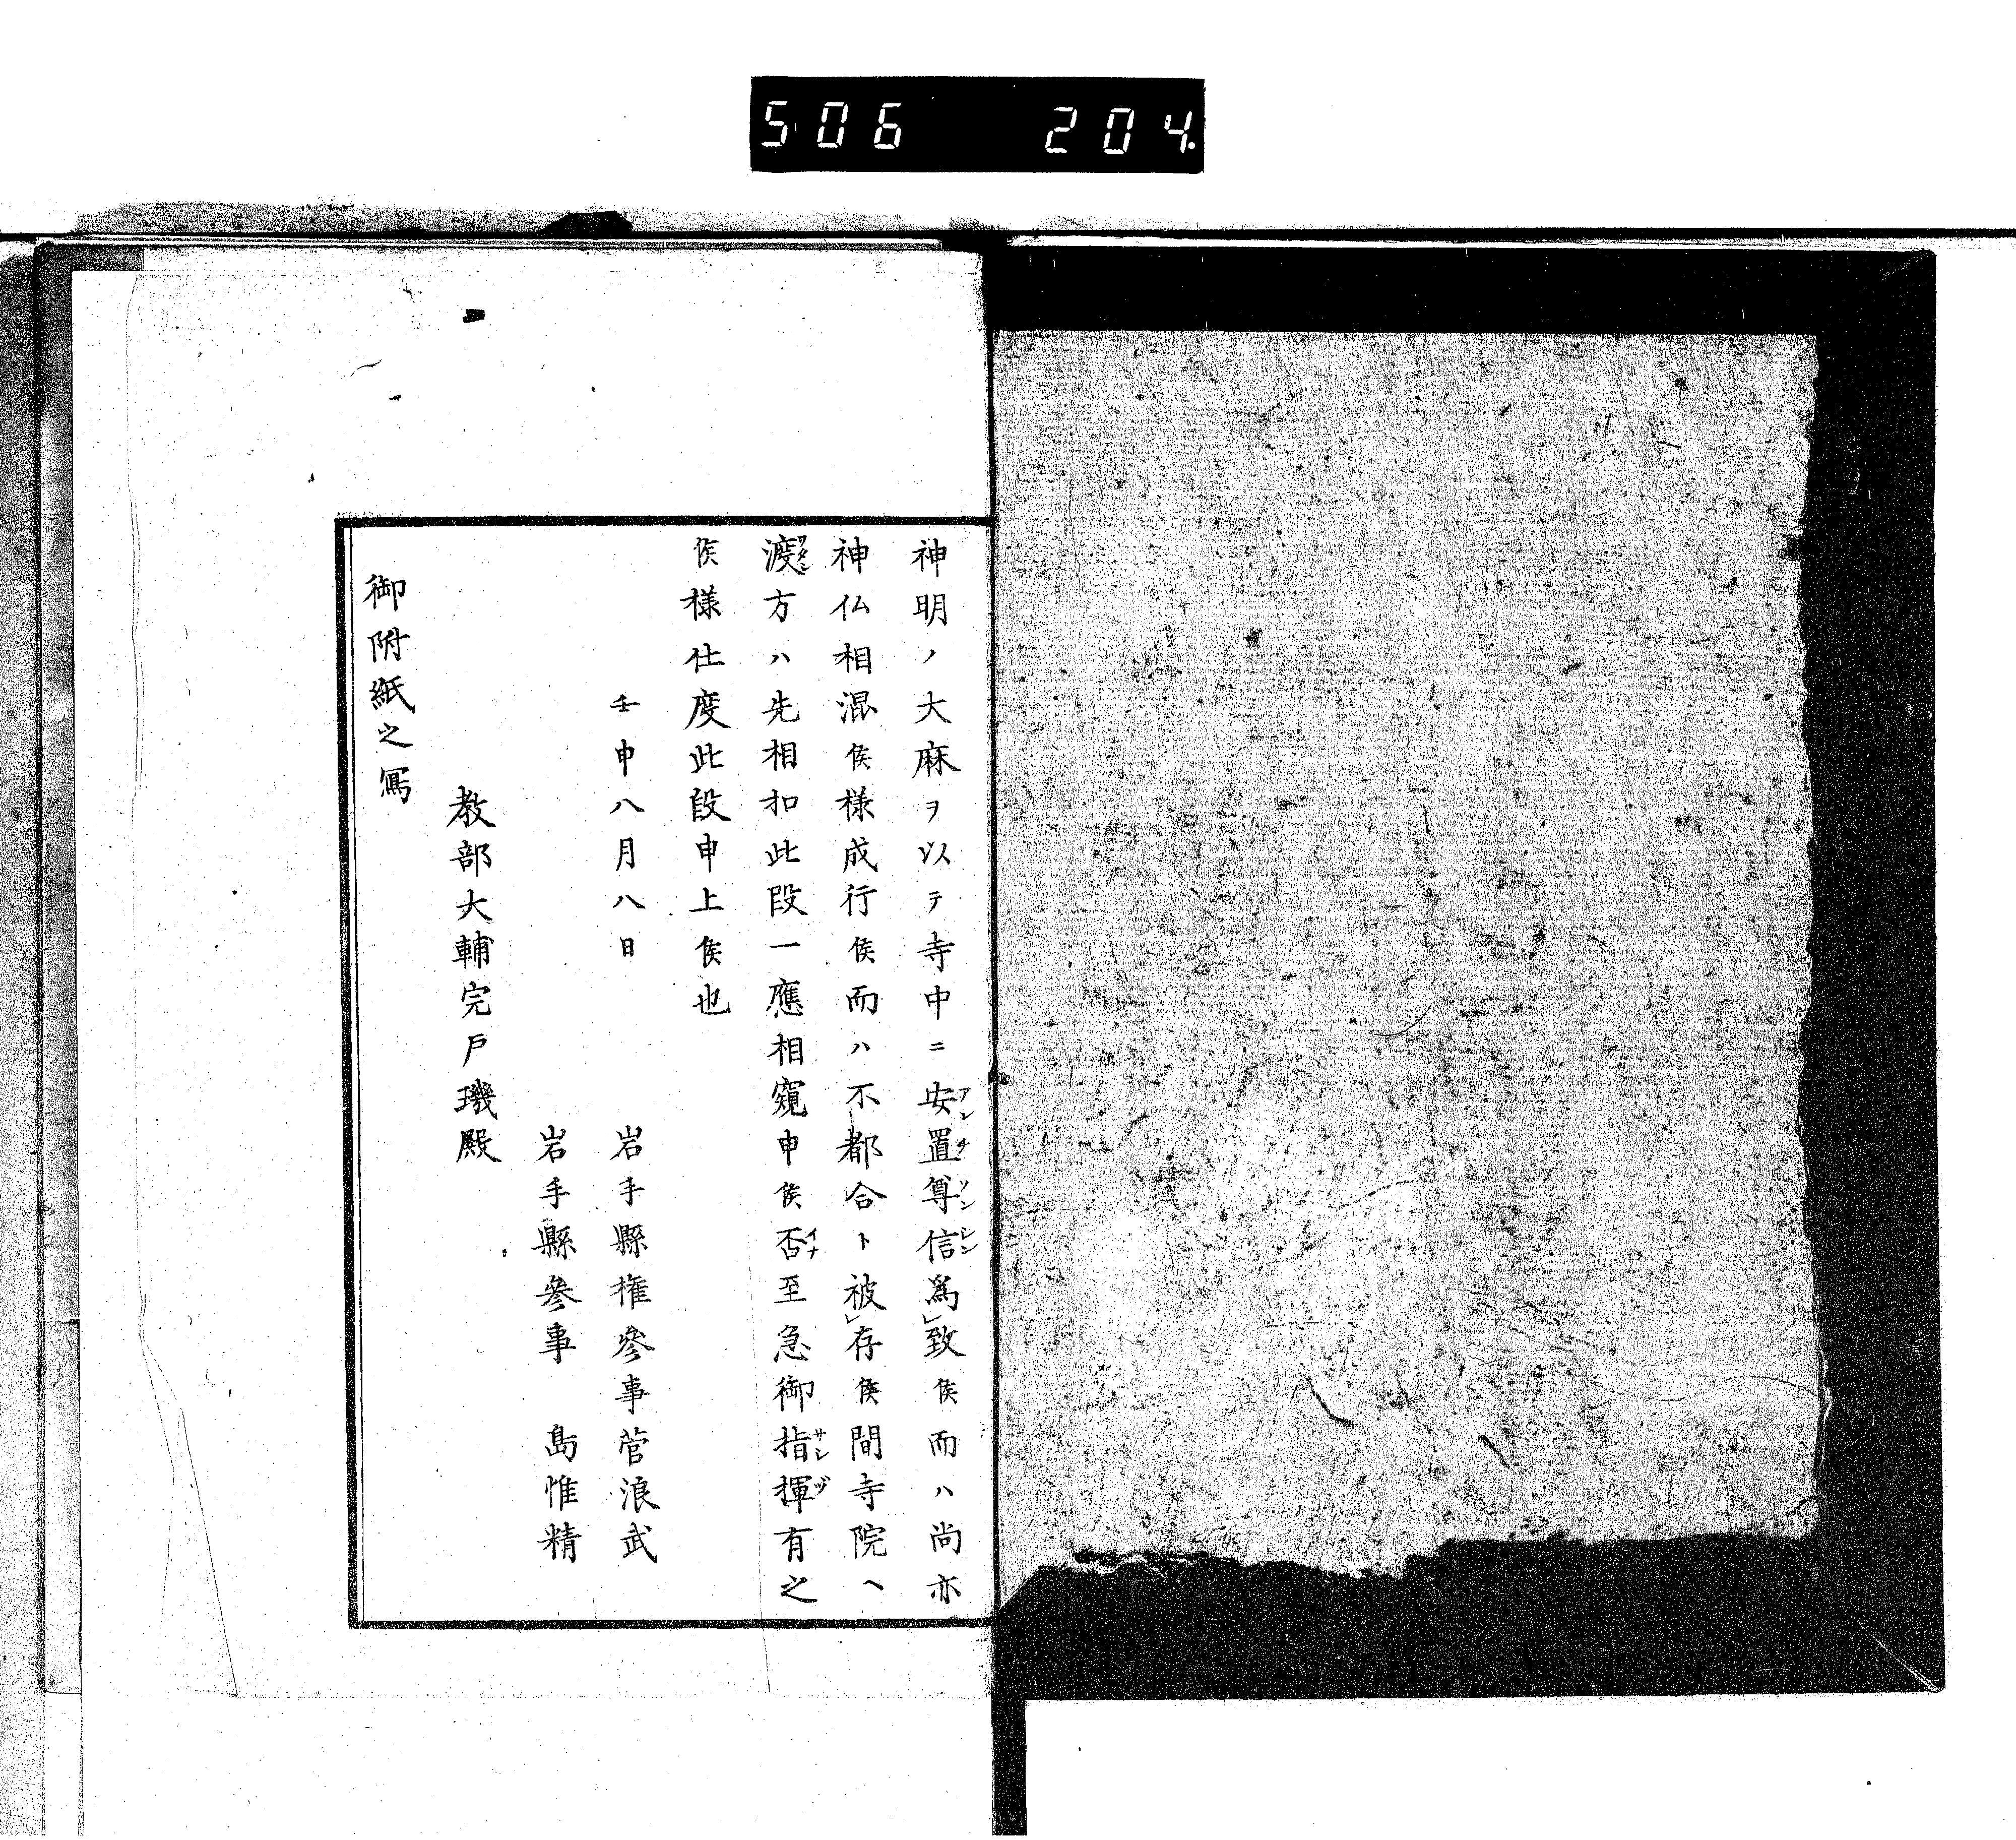 506 204
神明ノ大麻ヲ以テ寺中ニ安置尊信為致候而ハ尚亦
神仏相混候様成行候而ハ不都合ト被存候間寺院ヘ
渡方ハ先相扣此段一應相窺申候否至急御指揮有之
候様仕度此段申上候也
壬申八月八日
岩手縣権參事菅浪武
岩手縣參事 島惟精
教部大輔宍戸璣殿
御附紙之寫